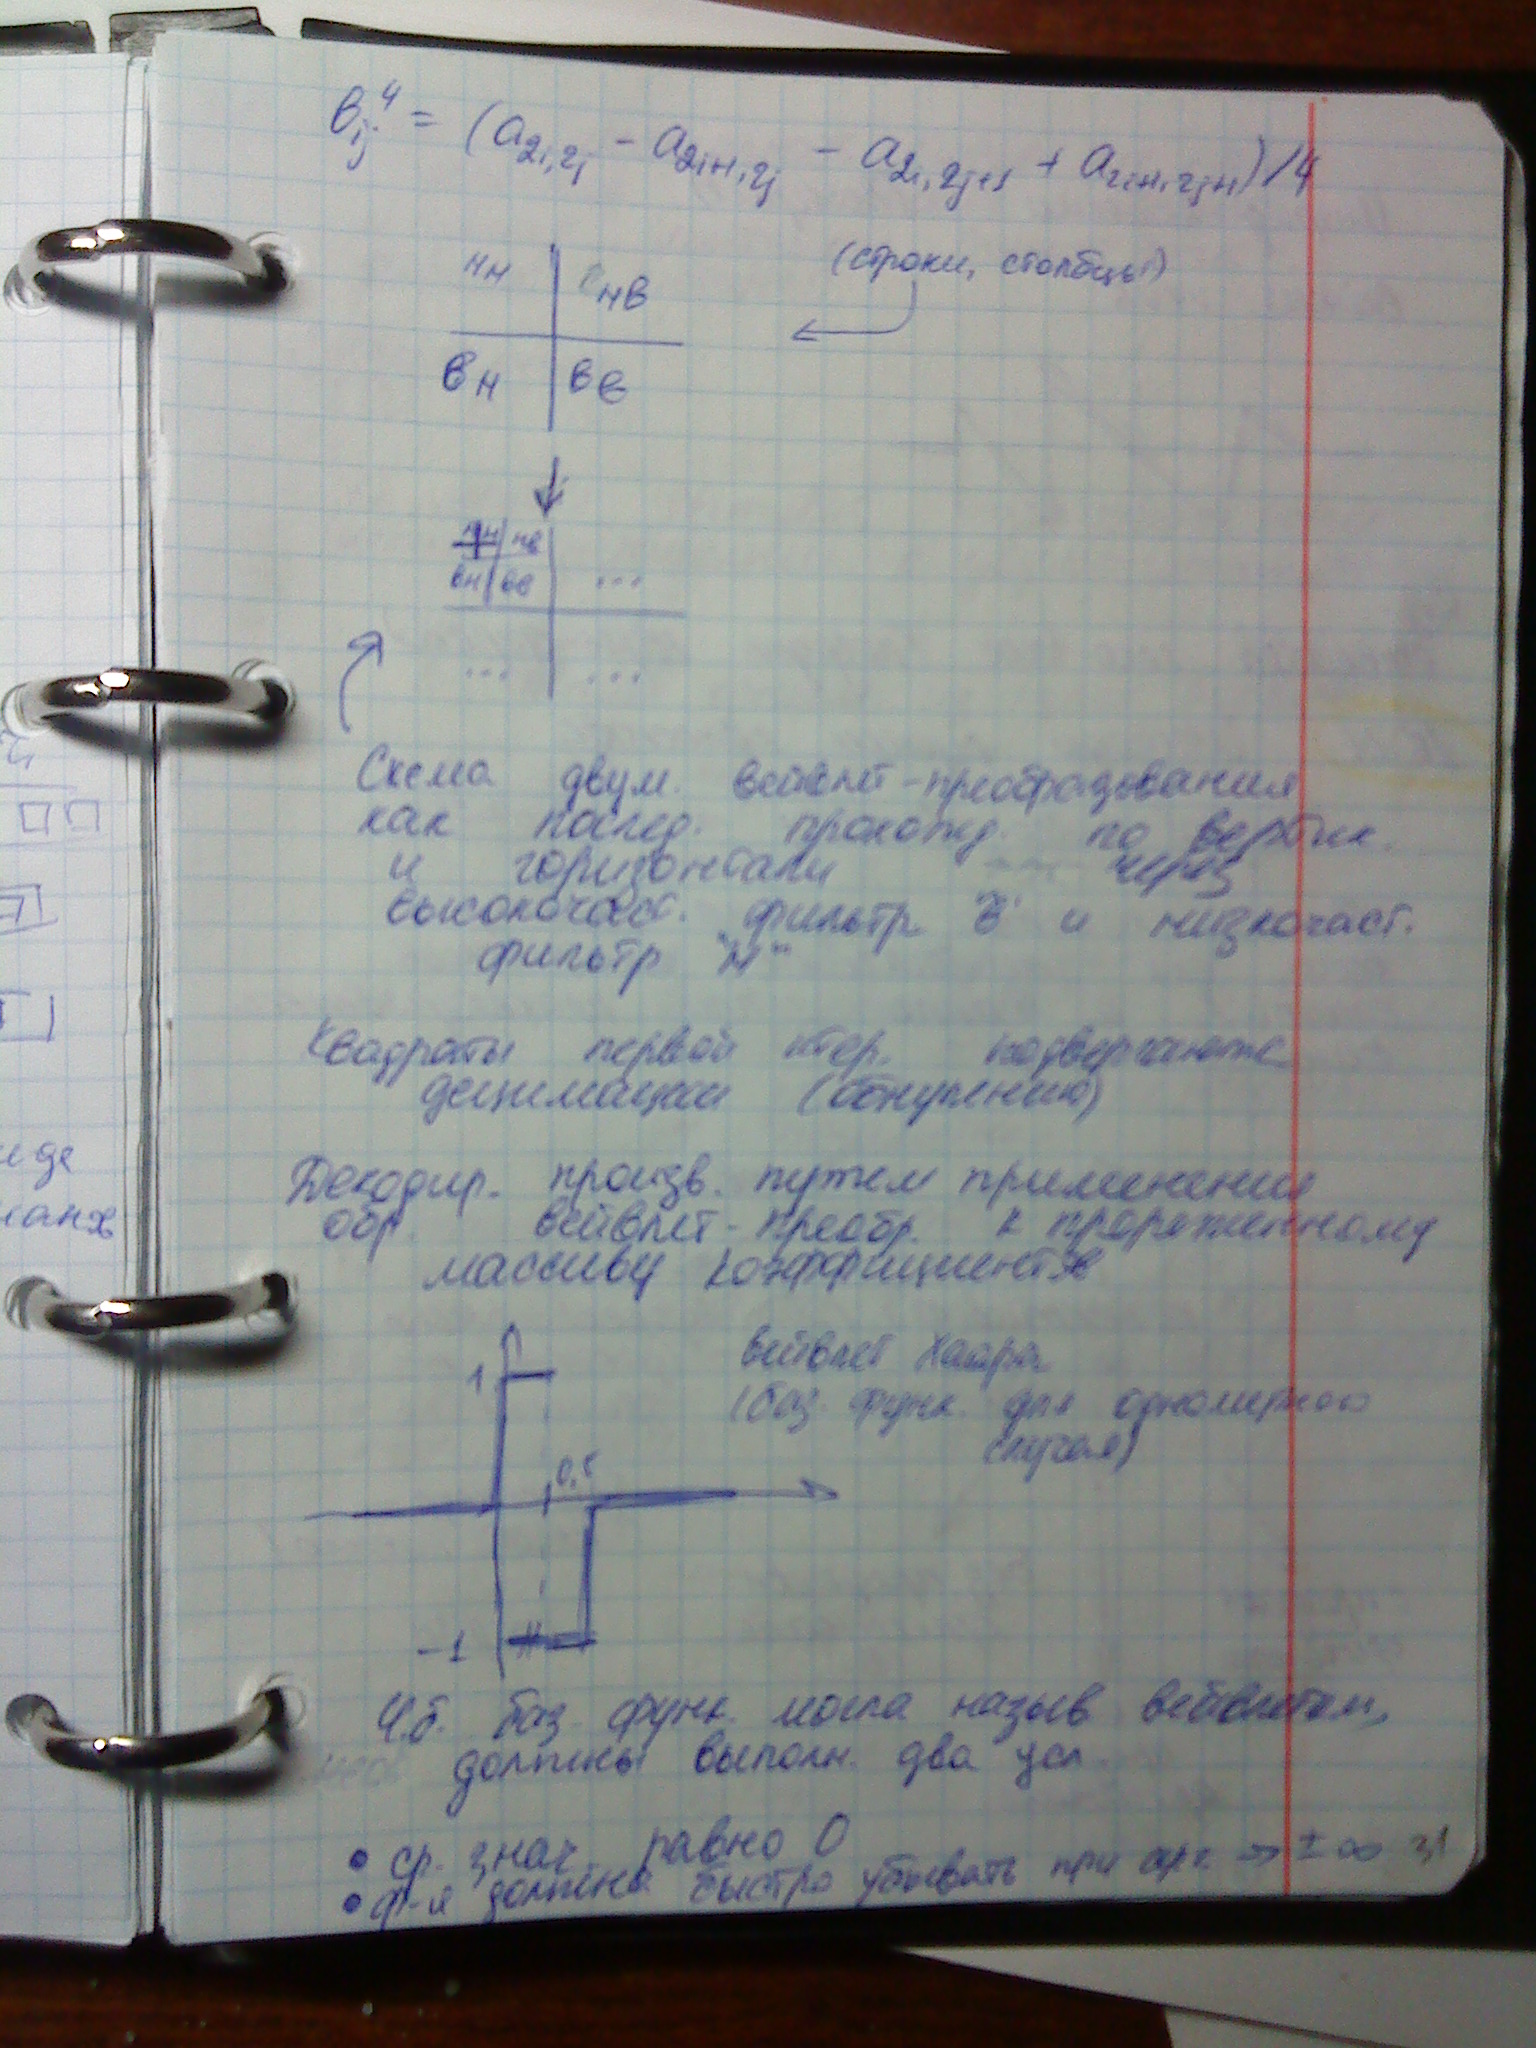 b_ij^4 = (a_2i,2j - a_2i+1,2j - a_2i,2j+1 + a_2i+1,2j+1)/4
(строки, столбцы)
НН НВ
ВН ВВ
НН НВ
ВН ВВ ...
... ...
Схема двум. вейвлет-преобразования
как послед. прохожд. по вертик.
и горизонтали через
высокочаст. фильтр "В" и низкочаст.
фильтр "Н"
Квадраты первой итер. подвергаются
децимации (обнулению)
Декодир. произв. путем применения
обр. вейвлет-преобр. к прореженному
массиву коэффициентов
1
вейвлет Хаара
(баз. функ. для одномерного
случая)
0,5
-1
Ч.б. баз. функ. могла назыв вейвлетом,
должны выполн. два усл.
• ср. знач. равно 0
• ф-я должна быстро убывать при арг → ± ∞ 31